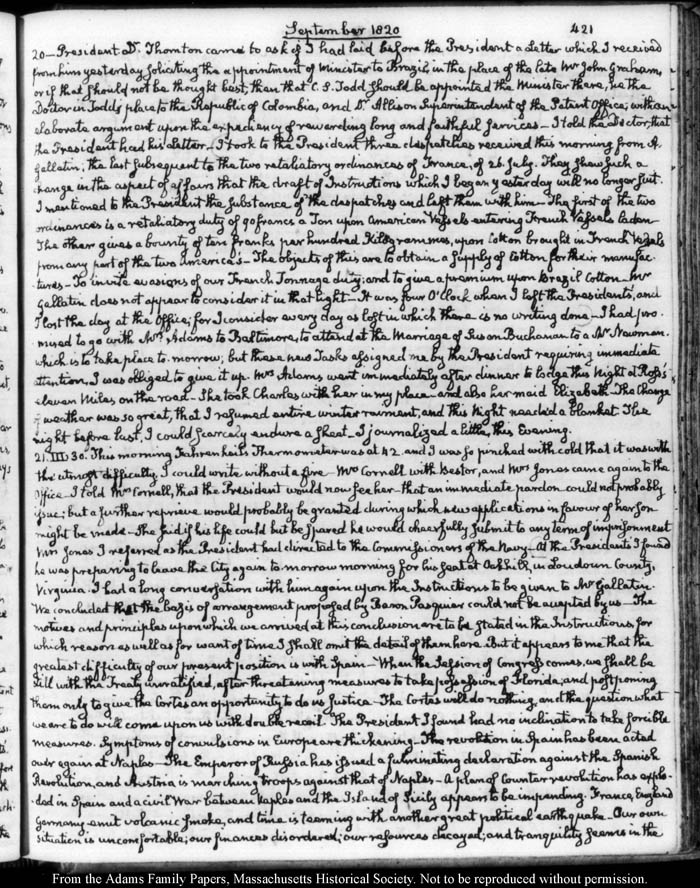 September 1820
421
20 — President Dr. Thornton came to ask if I had laid before the President a Letter which I received
from him yesterday soliciting the appointment of Minister to Brazil, in the place of the late Mr John Graham,
or if that should not be thought best, then that C. S. Todd should be appointed the Minister there, he the
Doctor in Todd's place to the Republic of Colombia, and Dr. Allison Superintendant of the Patent Office; with an
elaborate argument upon the expediency of rewarding long and faithful services — I told the Doctor, that
the President had his Letter — I took to the President three despatches received this morning from A.
Gallatin; the last subsequent to the two retaliatory ordinances of France, of 26. July. They shew such a
change in the aspect of affairs that the draft of Instructions which I began yesterday will no longer suit.
I mentioned to the President the substance of the despatches and left them with him — The first of the two
ordinances is a retaliatory duty of 90 francs a Ton upon American Vessels entering French Vessels laden
The other gives a bounty of ten franks per hundred Kilogrammes, upon Cotton brought in French Vessels
from any part of the two America's — The objects of this are to obtain a supply of Cotton for their manufac-
tures — To invite evasions of our French Tonnage duty; and to give a premium upon Brazil Cotton — Mr
Gallatin does not appear to consider it in that light — It was four O'Clock when I left the Presidents, and
I lost the day at the Office; for I consider every day as lost in which there is no writing done — I had pro-
mised to go with Mrs Adams to Baltimore, to attend at the Marriage of Susan Buchanan to a Mr Newman.
which is to take place to-morrow; but these new Tasks assigned me by the President requiring immediate
attention, I was obliged to give it up. Mrs Adams went immediately after dinner to lodge this Night at Ross's
eleven Miles on the road — She took Charles with her in my place — and also her maid Elizabeth — The Change
of weather was so great, that I resumed entire winter raiment, and this Night needed a blanket. The
night before last, I could scarcely endure a sheet — I journalized a little, this Evening.
21. III 30. This morning Fahrenheit's Thermometer was at 42. and I was so pinched with cold that it was with
the utmost difficulty I could write without a fire — Mrs Cornell with Bestor, and Mrs Jones came again to the
Office — I told Mrs Cornell, that the President would now see her — that an immediate pardon could not probably
issue; but a further reprieve would probably be granted during which new applications in favour of her Son
might be made — She said if his life could but be spared he would chearfully submit to any term of imprisonment
Mrs Jones I referred as the President had directed to the Commissioners of the Navy — At the Presidents I found
he was preparing to leave the City again to morrow morning for his Seat at Oakhill, in Loudoun County,
Virginia. I had a long conversation with him again upon the Instructions to be given to Mr Gallatin.
We concluded that the basis of arrangement proposed by Baron Pasquier could not be accepted by us — The
motives and principles upon which we arrived at this conclusion are to be stated in the Instructions, for
which reason as well as for want of time I shall omit the detail of them here. But it appears to me that the
greatest difficulty of our present position is with Spain — When the Session of Congress comes, we shall be
still with the Treaty unratified, after threatening measures to take possession of Florida, and postponing
them only to give the Cortes an opportunity to do us Justice — The Cortes will do nothing, and the question what
we are to do will come upon us with double recoil. The President I found had no inclination to take forcible
measures. Symptoms of convulsions in Europe are thickening — The revolution in Spain has been acted
over again at Naples — The Emperor of Russia has issued a fulminating declaration against the Spanish
Revolution, and Austria is marching troops against that of Naples — A plan of Counter revolution has explo-
ded in Spain and a civil War between Naples and the Island of Sicily appears to be impending. France, England
Germany emit volcanic smoke, and time is teeming with another great political earthquake — Our own
situation is uncomfortable; our finances disordered; our resources decayed; and tranquility seems in the
From the Adams Family Papers, Massachusetts Historical Society. Not to be reproduced without permission.